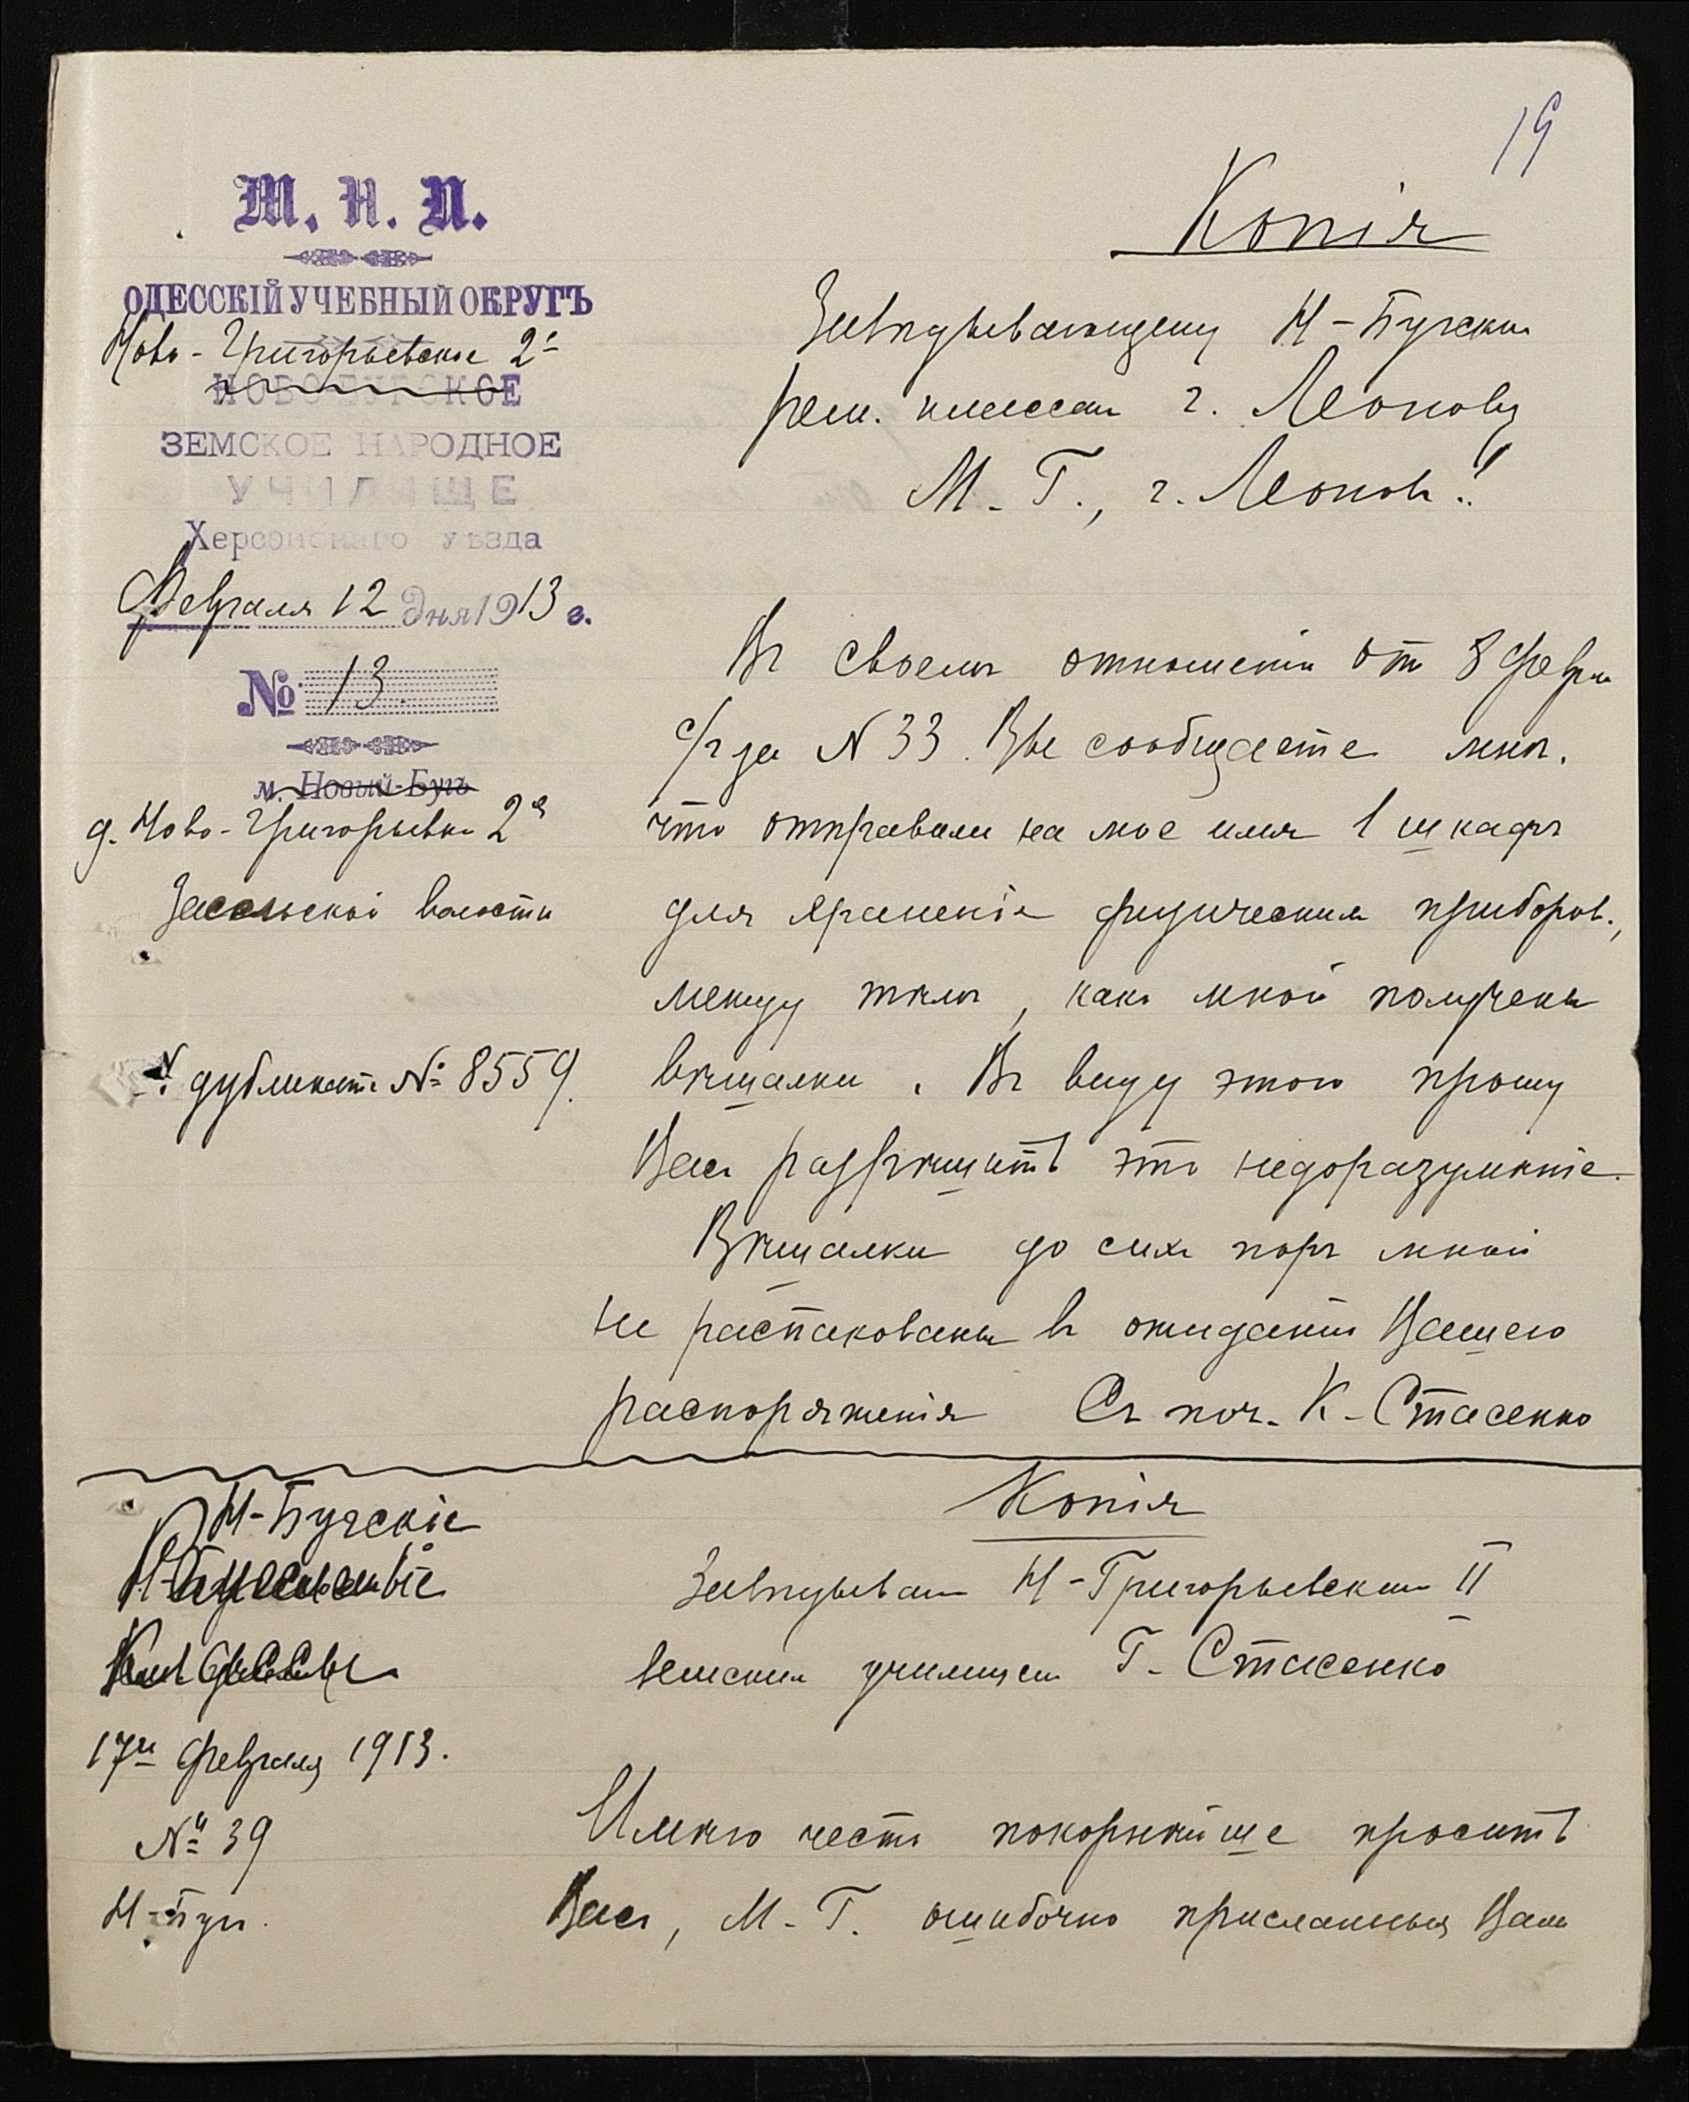 19
М. Н. П.
ОДЕССКІЙ УЧЕБНЫЙ ОКРУГЪ
Ново-Григорьевское 2е
НОВОБУГСКОЕ
ЗЕМСКОЕ НАРОДНОЕ
УЧИЛИЩЕ
Херсонскаго уѣзда
Февраля 12 дня 1913 г.
№ 13.
м. Новый-Бугъ
д. Ново-Григорьевка 2я
Засельской волости
дубликатъ № 8559.
Копія
Завѣдывающему Н-Бугским
рем. классам г. Леонову
М. Г., г. Леоновъ!
Въ своемъ отношеніи отъ 8 февр
с/г за N 33. Вы сообщаете мнѣ,
что отправили на мое имя 1 шкафъ
для храненія физическихъ приборов.,
между тѣмъ, какъ мной получены
вѣшалки. Въ виду этого прошу
Васъ разрѣшить это недоразумѣніе.
Вѣшалки до сихъ поръ мной
не распакованы въ ожиданіи Вашего
распоряженія Съ поч. К-Стасенко
Н-Бугскіе
Ремесленные
Классы
17го февраля 1913.
№ 39
Н-Бугъ.
Копія
Завѣдывающ Н-Григорьевским II
земским училищем Г. Стасенко
Имѣю честь покорнѣйше просить
Васъ, М-Г. ошибочно присланныя Вамъ